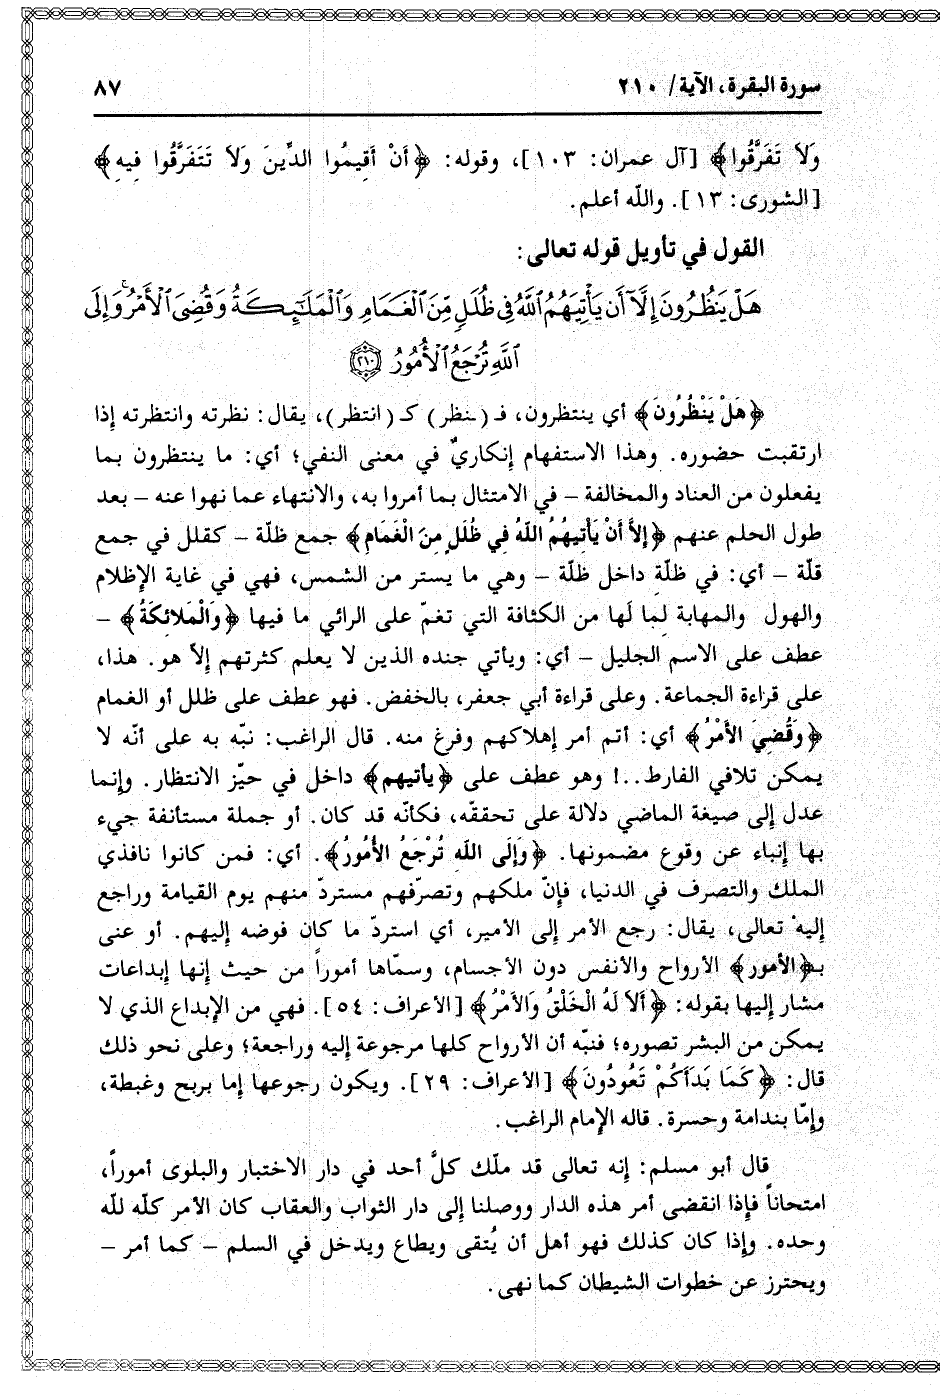 سورة البقرة، الآية/ ٢١٠
٨٧
وَلاَ تَفَرَّقُوا﴾ [آل عمران: ١٠٣]، وقوله: ﴿أَنْ أَقِيمُوا الدِّينَ وَلاَ تَتَفَرَّقُوا فِيهِ﴾
[الشورى: ١٣]. واللّه أعلم.
القول في تأويل قوله تعالى:
هَلْ يَنظُرُونَ إِلَّآ أَن يَأْتِيَهُمُ ٱللَّهُ فِي ظُلَلٍ مِّنَ ٱلْغَمَامِ وَٱلْمَلَٰٓئِكَةُ وَقُضِيَ ٱلْأَمْرُ ۚ وَإِلَى
ٱللَّهِ تُرْجَعُ ٱلْأُمُورُ ٢١٠
﴿هَلْ يَنْظُرُونَ﴾ أي ينتظرون، فـ (ـنظر) كـ (انتظر)، يقال: نظرته وانتظرته إذا
ارتقبت حضوره. وهذا الاستفهام إنكاريٌ في معنى النفي؛ أي: ما ينتظرون بما
يفعلون من العناد والمخالفة – في الامتثال بما أمروا به، والانتهاء عما نهوا عنه – بعد
طول الحلم عنهم ﴿إِلاَّ أَنْ يَأْتِيهُمُ اللَّهُ فِي ظُلَلٍ مِنَ الْغَمَامِ﴾ جمع ظلّة – كقلل في جمع
قلّة – أي: في ظلّة داخل ظلّة – وهي ما يستر من الشمس، فهي في غاية الإظلام
والهول والمهابة لِما لَها من الكثافة التي تغمّ على الرائي ما فيها ﴿وَالْمَلائِكَةُ﴾ –
عطف على الاسم الجليل – أي: ويأتي جنده الذين لا يعلم كثرتهم إلاّ هو. هذا،
على قراءة الجماعة. وعلى قراءة أبي جعفر، بالخفض. فهو عطف على ظلل أو الغمام
﴿وَقُضِيَ الأَمْرُ﴾ أي: أتم أمر إهلاكهم وفرغ منه. قال الراغب: نبّه به على أنّه لا
يمكن تلافي الفارط..! وهو عطف على ﴿يأتيهم﴾ داخل في حيّز الانتظار. وإنما
عدل إلى صيغة الماضي دلالة على تحققه، فكأنّه قد كان. أو جملة مستأنفة جيء
بها إنباء عن وقوع مضمونها. ﴿وَإِلَى اللَّهِ تُرْجَعُ الأُمُورُ﴾. أي: فمن كانوا نافذي
الملك والتصرف في الدنيا، فإنّ ملكهم وتصرّفهم مستردّ منهم يوم القيامة وراجع
إليهْ تعالى، يقال: رجع الأمر إلى الأمير، أي استردّ ما كان فوضه إليهم. أو عنى
بـ﴿الأمور﴾ الأرواح والأنفس دون الأجسام، وسمّاها أموراً من حيث إنها إبداعات
مشار إليها بقوله: ﴿أَلاَ لَهُ الْخَلْقُ وَالأَمْرُ﴾ [الأعراف: ٥٤]. فهي من الإبداع الذي لا
يمكن من البشر تصوره؛ فنبّه أن الأرواح كلها مرجوعة إليه وراجعة؛ وعلى نحو ذلك
قال: ﴿كَمَا بَدَأَكُمْ تَعُودُونَ﴾ [الأعراف: ٢٩]. ويكون رجوعها إما بربح وغبطة،
وإمّا بندامة وحسرة. قاله الإمام الراغب.
قال أبو مسلم: إنه تعالى قد ملّك كلَّ أحد في دار الاختبار والبلوى أموراً،
امتحاناً فإذا انقضى أمر هذه الدار ووصلنا إلى دار الثواب والعقاب كان الأمر كلّه للّه
وحده. وإذا كان كذلك فهو أهل أن يُتقى ويطاع ويدخل في السلم – كما أمر –
ويحترز عن خطوات الشيطان كما نهى.